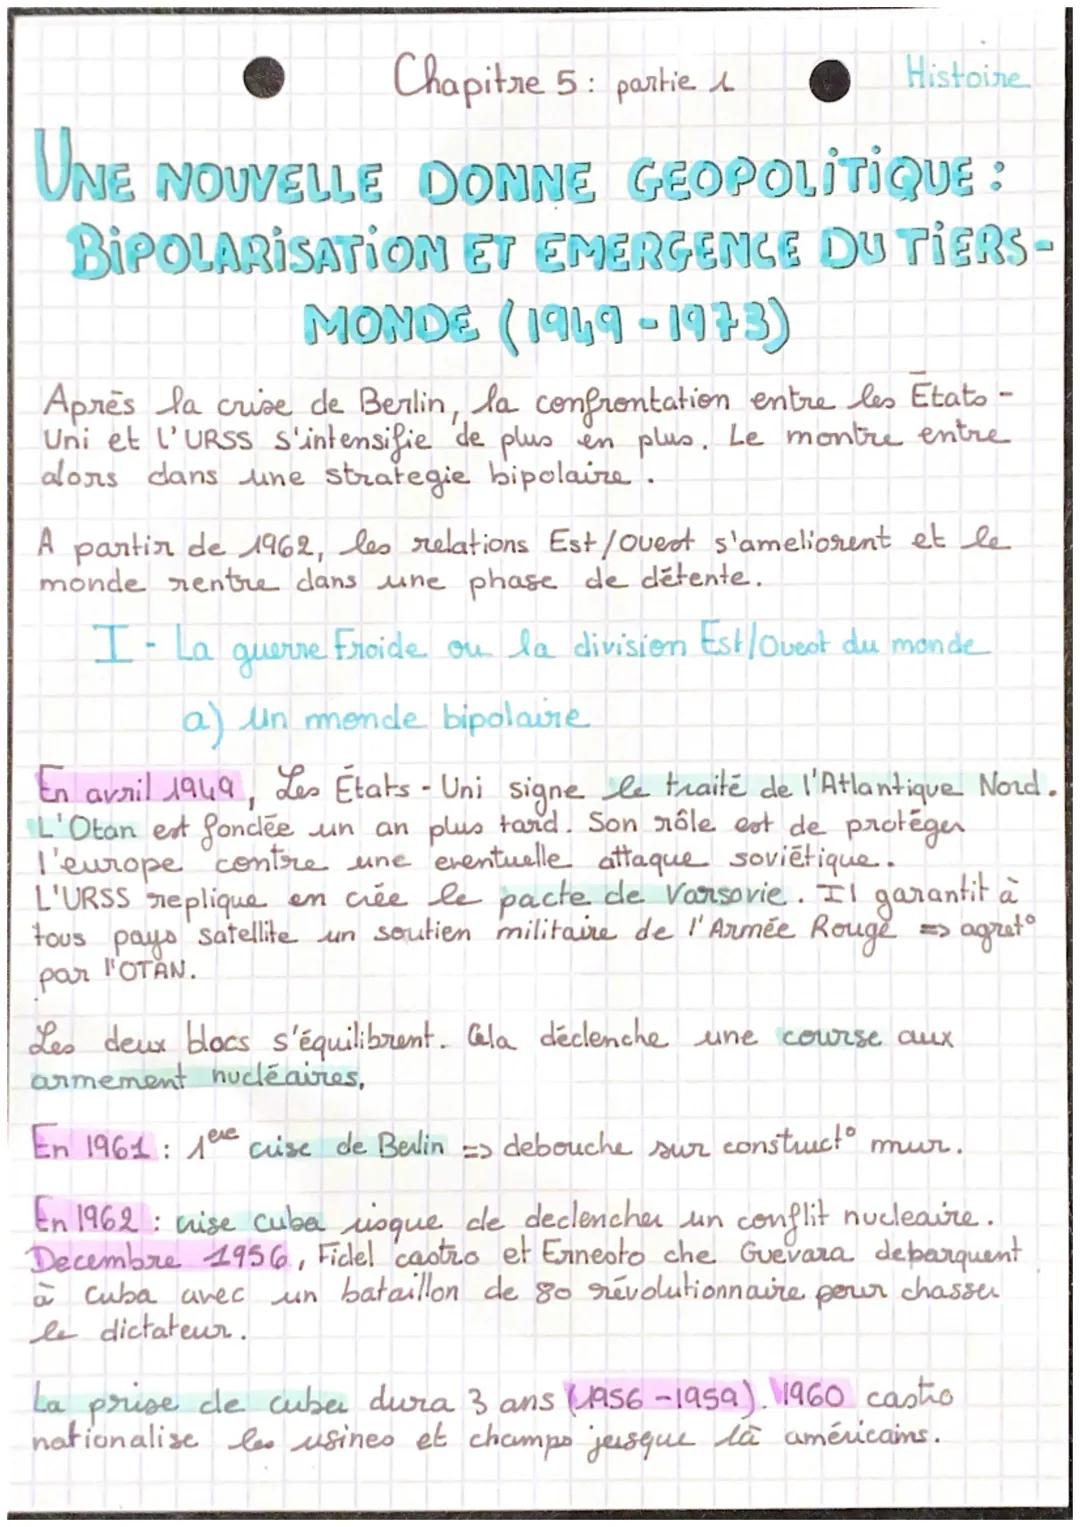 Chapitre 5 : partie 1
Histoire
UNE NOUVELLE DONNE GEOPOLITIQUE :
BIPOLARISATION ET EMERGENCE DU TIERS-
MONDE (1949 - 1973)
Après la crise de Berlin, la confrontation entre les États -
Uni et l'URSS s'intensifie de plus en plus. Le montre entre
alors dans une strategie bipolaire.
A partir de 1962, les relations Est/Ouest s'ameliorent et le
monde rentre dans une phase de détente.
I - La guerre Froide ou la division Est/Ouest du monde
a) Un monde bipolaire
En avril 1949, Les États - Uni signe le traité de l'Atlantique Nord.
L'Otan est fondée un an plus tard. Son rôle est de protéger
l'europe contre une eventuelle attaque soviétique.
L'URSS replique en crée le pacte de Varsovie. Il garantit à
tous pays satellite un soutien militaire de l'Armée Rouge => agret°
par l'OTAN.
Les deux blocs s'équilibrent. Cela déclenche une course aux
armement nucléaires,
En 1961 : 1ere crise de Berlin => debouche sur construct° mur.
En 1962 : crise cuba risque de declencher un conflit nucleaire.
Decembre 1956, Fidel castro et Ernesto che Guevara debarquent
à Cuba avec un bataillon de 80 révolutionnaire pour chasser
le dictateur.
La prise de cuba dura 3 ans (1956 - 1959). 1960 castro
nationalise les usines et champs jusque là américains.